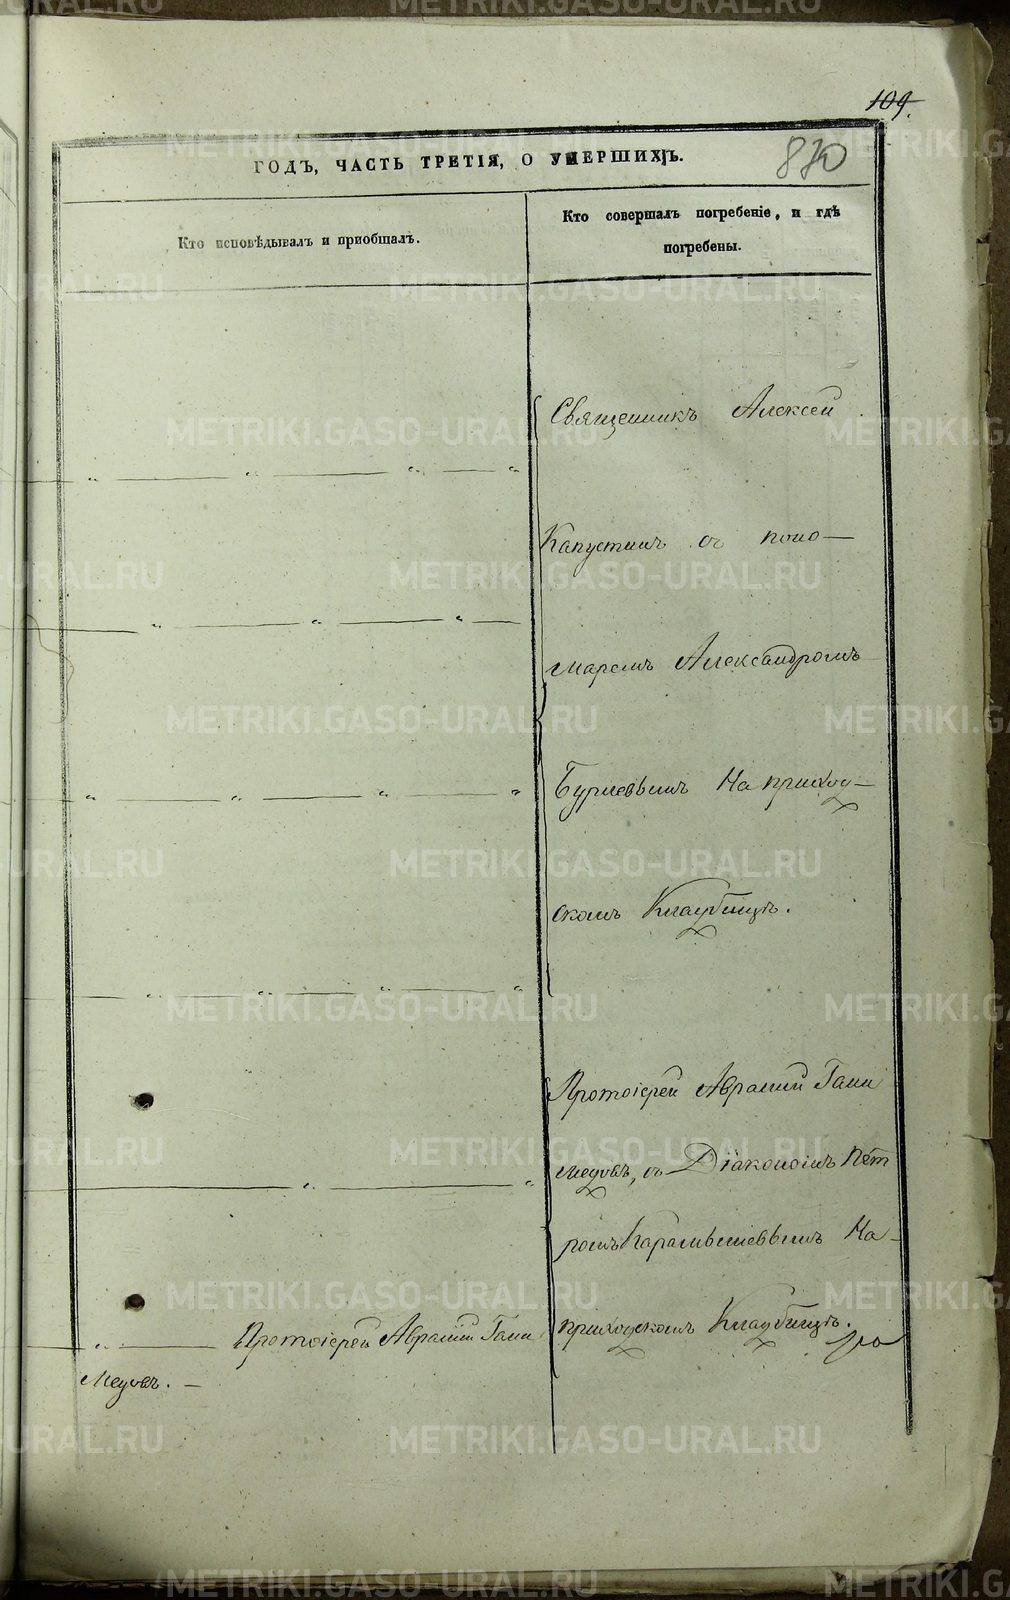 109.
ГОДЪ, ЧАСТЬ ТРЕТІЯ, О УМЕРШИХЪ.
870
Кто исповѣдывалъ и пріобщалъ.
Кто совершалъ погребеніе, и гдѣ
погребены.
Священникъ Алексѣй
Капустинъ съ поно—
маремъ Александромъ
на приход—
скомъ Кладбищѣ.
Протоіерей Аврамій Гани
медовъ, съ Діакономъ Пет
ромъ Карамышевымъ На—
приходскомъ Кладбищѣ.
Протоіерей Аврамій Гани
медовъ. —
METRIKI.GASO-URAL.RU